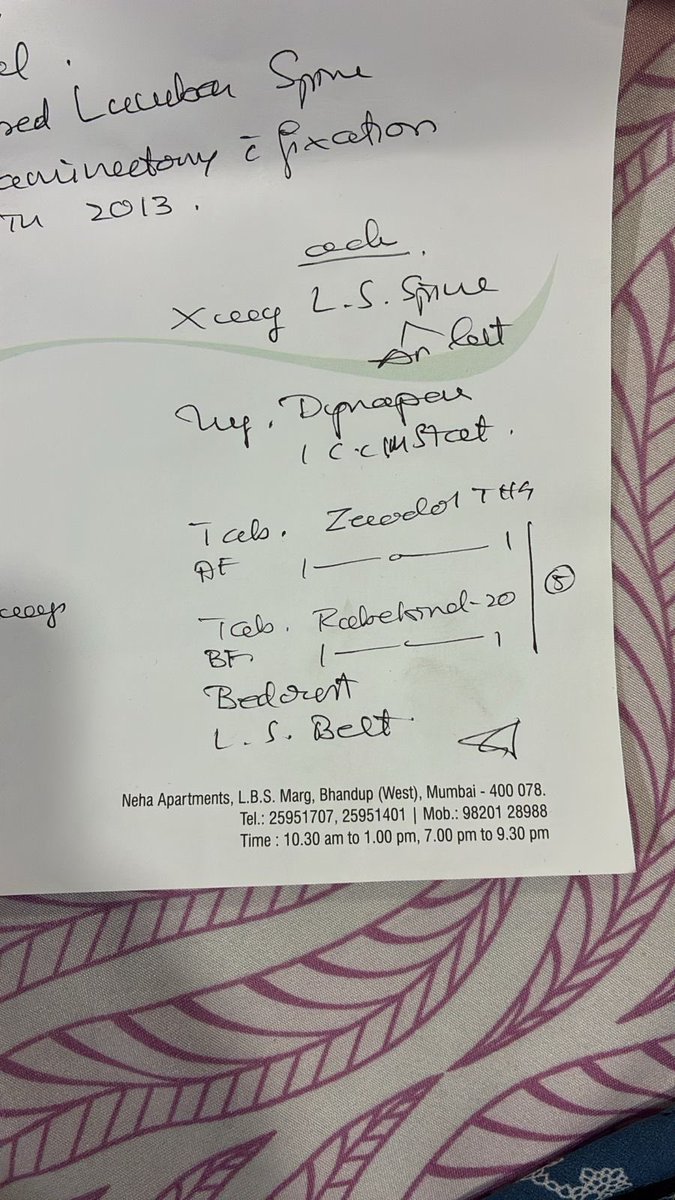 el.
sed Lumbar Spine
laminectomy c̄ fixation
in 2013.
adv.
Xray L.S. Spine
AP lat
Inj. Dynapar
1 c.c IM Stat.
Tab. Zerodol TH4
AF 1 — o — 1
5
Tab. Rabekind-20
BF 1 — 1
Bedrest
L.S. Belt
Neha Apartments, L.B.S. Marg, Bhandup (West), Mumbai - 400 078.
Tel.: 25951707, 25951401 | Mob.: 98201 28988
Time : 10.30 am to 1.00 pm, 7.00 pm to 9.30 pm